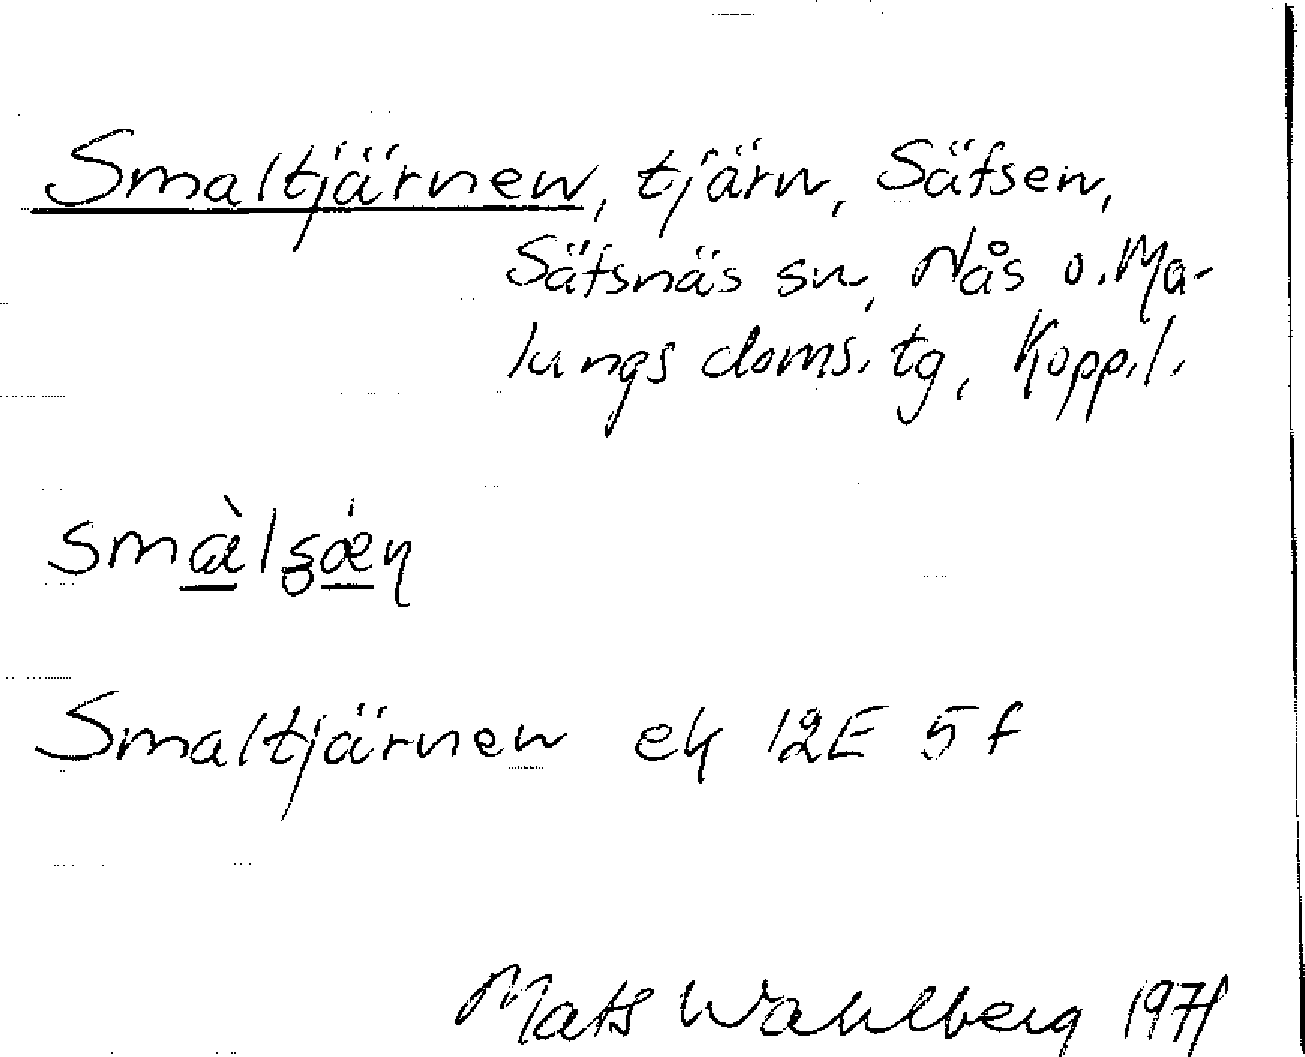 Smaltjärnen, tjärn, Säfsen,
Säfsnäs sn, Nås o. Ma-
lungs doms. tg, Kopp. l.
Smaltjärnen ek 12E 5f
Mats Wahlberg 1971